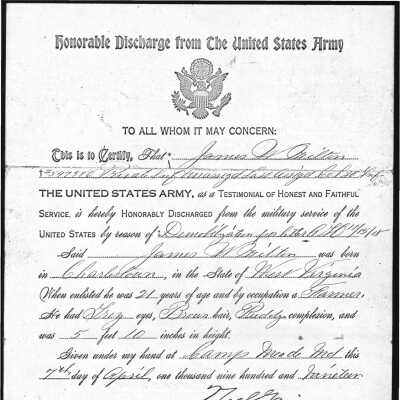 Honorable Discharge from The United States Army
TO ALL WHOM IT MAY CONCERN:
This is to Certify, That James W Milton
Private
THE UNITED STATES ARMY, as a TESTIMONIAL OF HONEST AND FAITHFUL
SERVICE, is hereby HONORABLY DISCHARGED from the military service of the
UNITED STATES by reason of Demobilization
Said James W Milton was born
in Charlestown, in the State of West Virginia
When enlisted he was 21 years of age and by occupation a Farmer
He had Grey eyes, Brown hair, Ruddy complexion, and
was 5 feet 10 inches in height.
Given under my hand at Camp Meade Md this
7th day of April, one thousand nine hundred and nineteen